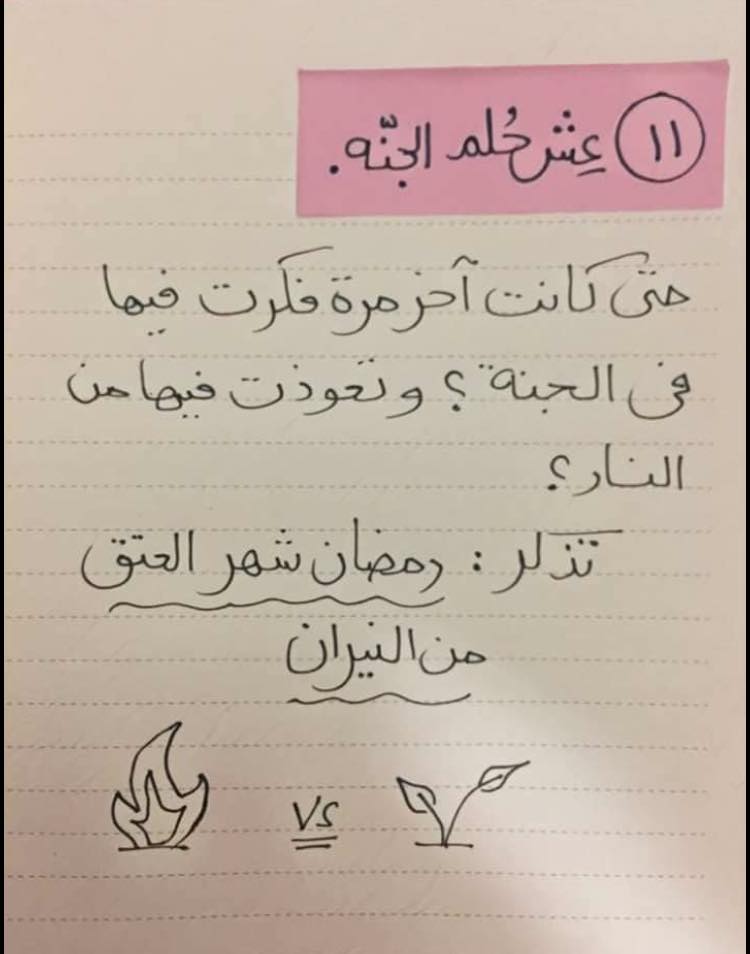 ١١ عِش حُلم الجنّه.
متى كانت آخر مرة فكرت فيها
فى الجنة ؟ وتعوذت فيها من
النار؟
تذكر : رمضان شهر العتق
من النيران
VS